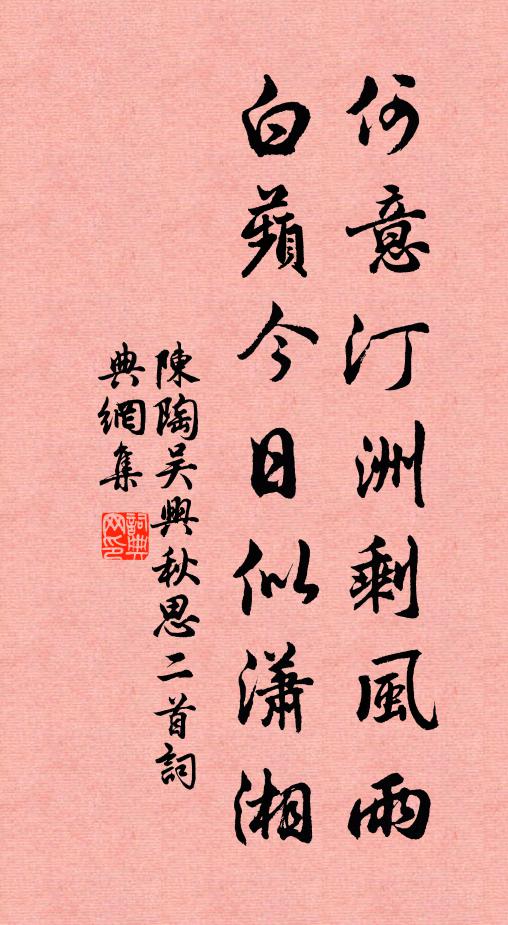 何意汀洲剩風雨
白蘋今日似瀟湘
陳陶吳興秋思二首詞
典網集
詞典
网印